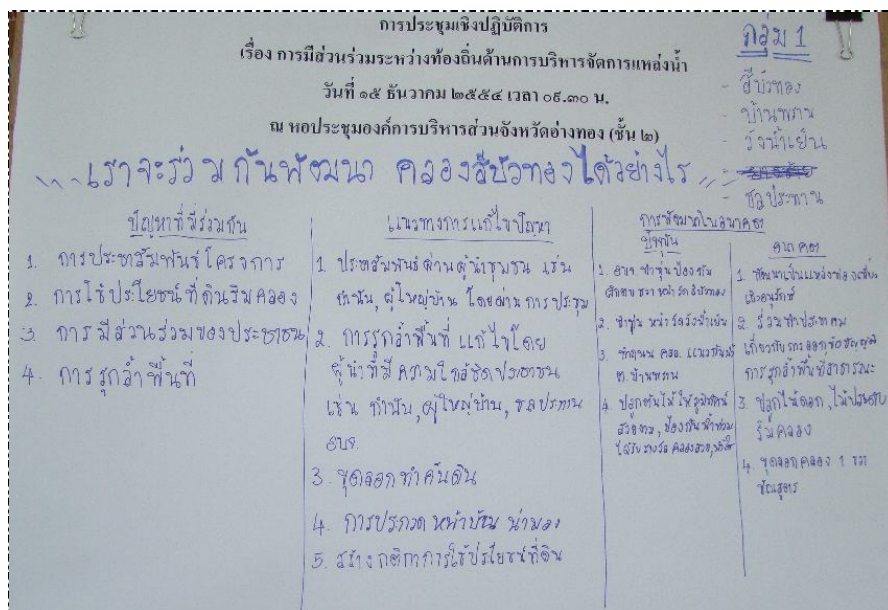 การประชุมเชิงปฏิบัติการ
เรื่อง การมีส่วนร่วมระหว่างท้องถิ่นด้านการบริหารจัดการแหล่งน้ำ
วันที่ ๑๕ ธันวาคม ๒๕๕๔ เวลา ๐๙.๓๐ น.
ณ หอประชุมองค์การบริหารส่วนจังหวัดอ่างทอง (ชั้น ๒)
กลุ่ม 1
- สีบัวทอง
- บ้านพราน
- วังน้ำเย็น
- ชลประทาน
เราจะร่วมกันพัฒนา คลองสีบัวทองได้อย่างไร
ปัญหาที่มีร่วมกัน
1. การประชาสัมพันธ์โครงการ
2. การใช้ประโยชน์ที่ดินริมคลอง
3. การมีส่วนร่วมของประชาชน
4. การรุกล้ำพื้นที่
แนวทางการแก้ไขปัญหา
1. ประชาสัมพันธ์ผ่านผู้นำชุมชน เช่น
กำนัน, ผู้ใหญ่บ้าน โดยผ่านการประชุม
2. การรุกล้ำพื้นที่ แก้ไขโดย
ผู้นำที่มีความใกล้ชิดประชาชน
เช่น กำนัน, ผู้ใหญ่บ้าน, ชลประทาน
อบจ.
3. ขุดลอกทำคันดิน
4. การประกวด หน้าบ้าน น่ามอง
5. สร้างกติกาการใช้ประโยชน์ที่ดิน
การพัฒนาในอนาคต
ปัจจุบัน
1. ทำทุ่นป้องกัน
ผักตบชวา หน้าวัดสีบัวทอง
2. ทำทุ่น หน้าวัดวังน้ำเย็น
3. ทำถนน คสล.
ต. บ้านพราน
4. ปลูกต้นไม้ให้ภูมิทัศน์
สวยงาม, ป้องกันน้ำท่วม
ได้รับรางวัล คลองสวย,
อนาคต
1. พัฒนาเป็นแหล่งท่องเที่ยว
เชิงอนุรักษ์
2. ร่วมทำประชาคม
เกี่ยวกับการออกข้อบัญญัติ
การรุกล้ำพื้นที่สาธารณะ
3. ปลูกไม้ดอก, ไม้ประดับ
ริมคลอง
4. ขุดลอกคลอง